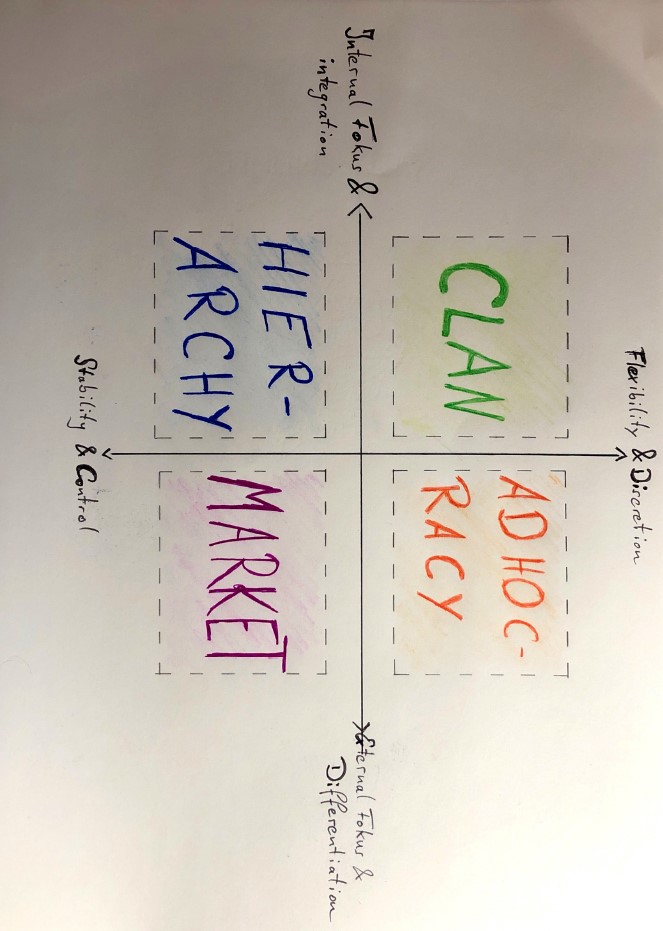 Flexibility & Discretion
CLAN
ADHOC-
RACY
Internal Fokus &
integration
Eternal Fokus &
Differentiation
HIER-
ARCHY
MARKET
Stability & Control